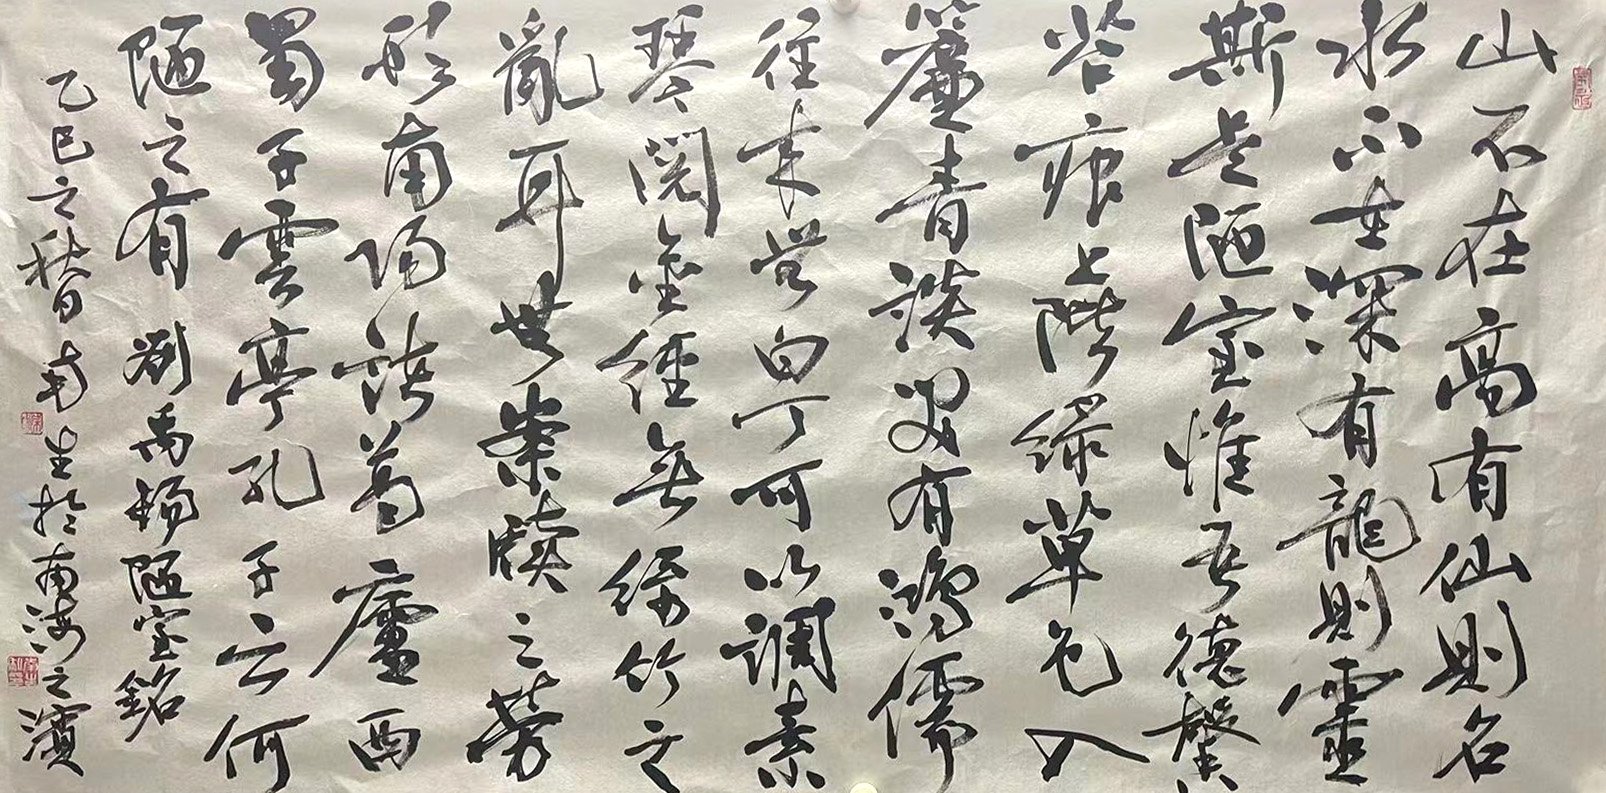 山不在高有仙則名
水不在深有龍則靈
斯是陋室惟吾德馨
苔痕上階緑草色入
簾青談笑有鴻儒
往来無白丁可以調素
琴閱金經無絲竹之
亂耳無案牘之勞
形南陽諸葛廬西
蜀子雲亭孔子云何
陋之有 劉禹錫陋室銘
乙巳之秋日 生於南海之濱